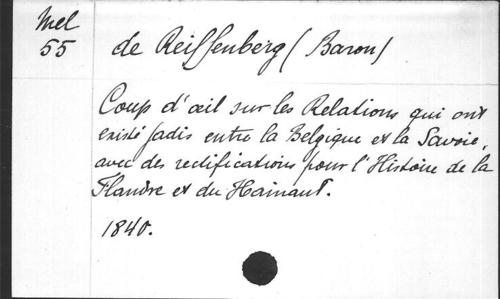 Mel
55
de Reiffenberg (Baron)
Coup d'œil sur les Relations qui ont
existé jadis entre la Belgique et la Savoie,
avec des rectifications pour l'Histoire de la
Flandre et du Hainaut.
1840.